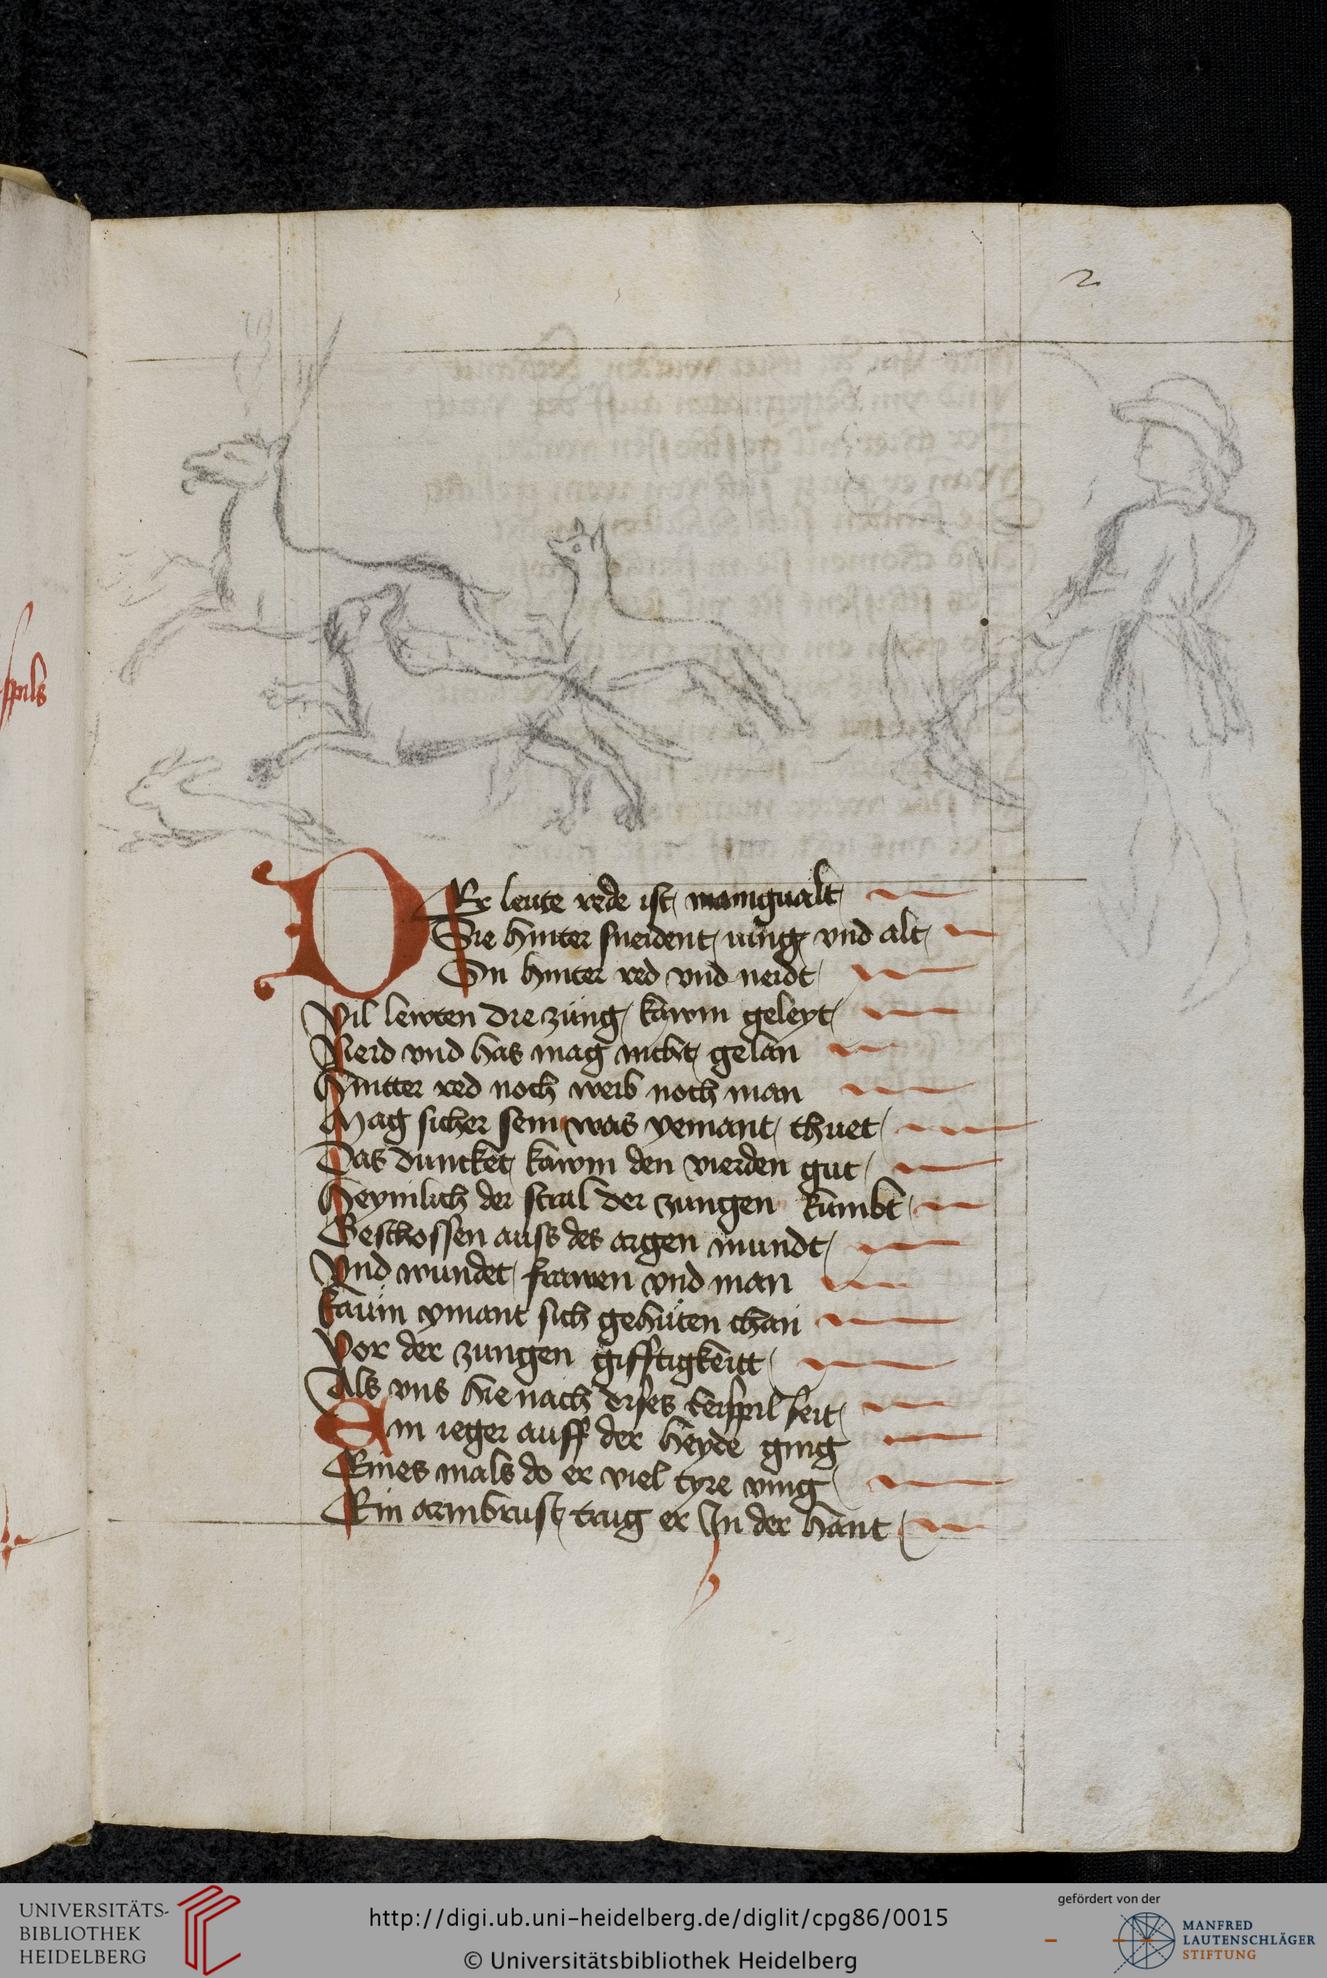 2
DEr leute rede ist manigualt
Die hinter sneident iung vnd alt
On hinter red vnd neidt
Vil lewten die züng kawm geleyt
Neid vnd has mag nicht gelan
Hintter red noch weib noch man
Mag sicher sein was yemant thuet
Das duncket kawm den vierden gut
Heymlich der stral der zungen kumbt
Geschossen auss des argen mundt
Vnd wundet frawen vnd man
kaum ymant sich gehüten chan
Vor der zungen gifftigkeitt
Als vns hie nach dises beispil seit
Ein ieger auff der heyde ging
Eines mals do er viel tyre ving
Ein armbrust trug er In der hant
spils
UNIVERSITÄTS-
BIBLIOTHEK
HEIDELBERG
http://digi.ub.uni-heidelberg.de/diglit/cpg86/0015
© Universitätsbibliothek Heidelberg
gefördert von der
MANFRED
LAUTENSCHLÄGER
STIFTUNG